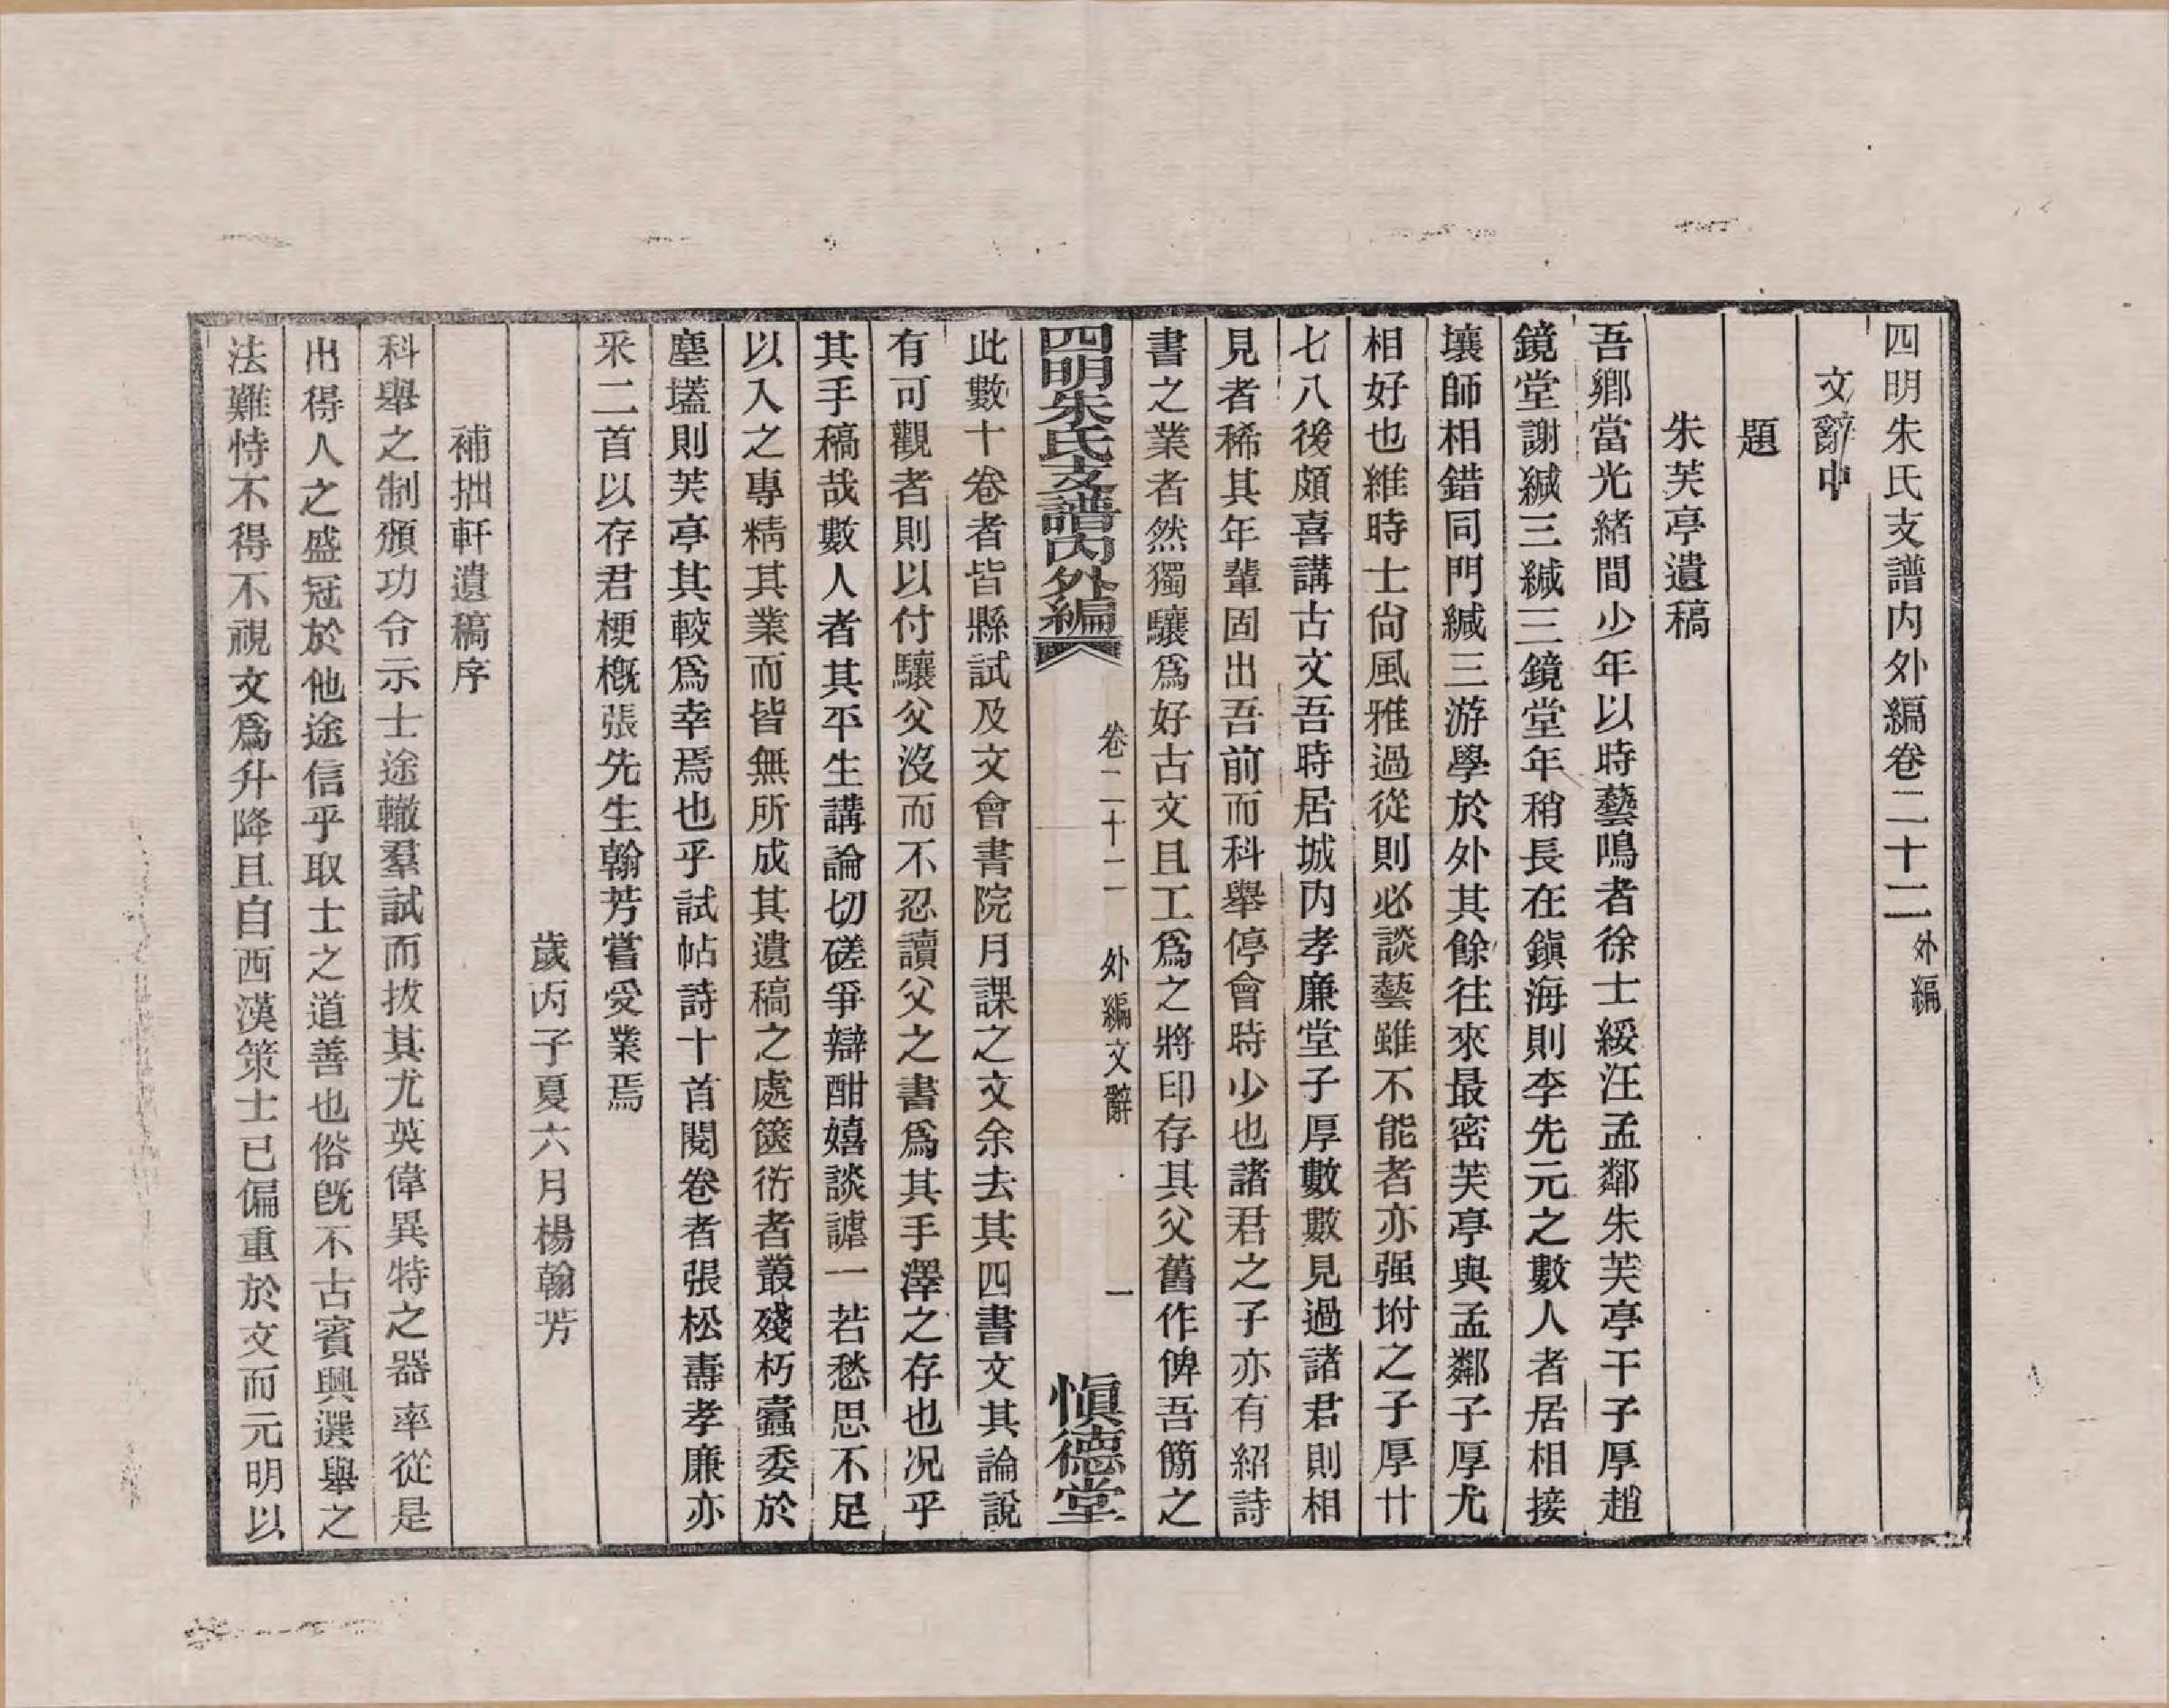 四明朱氏支譜内外編卷二十二 外編
文辭中
題
朱芙亭遺稿
吾鄉當光緒間少年以時藝鳴者徐士綏汪孟鄰朱芙亭干子厚趙
鏡堂謝緘三緘三鏡堂年稍長在鎭海則李先元之數人者居相接
壤師相錯同門緘三游學於外其餘往來最密芙亭與孟鄰子厚尤
相好也維時士尙風雅過從則必談藝雖不能者亦强坿之子厚廿
七八後頗喜講古文吾時居城内孝廉堂子厚數數見過諸君則相
見者稀其年輩固出吾前而科舉停會時少也諸君之子亦有紹詩
書之業者然獨驤爲好古文且工爲之將印存其父舊作俾吾簡之
四明朱氏支譜内外編 卷二十二 外編文辭 一 愼德堂
此數十卷者皆縣試及文會書院月課之文余去其四書文其論說
有可觀者則以付驤父沒而不忍讀父之書爲其手澤之存也况乎
其手稿哉數人者其平生講論切磋爭辯酣嬉談謔一若愁思不足
以入之專精其業而皆無所成其遺稿之處篋衍者叢殘朽蠹委於
塵壒則芙亭其較爲幸焉也乎試帖詩十首閱卷者張松壽孝廉亦
采二首以存君梗概張先生翰芳嘗受業焉
歲丙子夏六月楊翰芳
補拙軒遺稿序
科舉之制頒功令示士途轍羣試而拔其尤英偉異特之器率從是
出得人之盛冠於他途信乎取士之道善也俗旣不古賓興選舉之
法難恃不得不視文爲升降且自西漢策士已偏重於文而元明以